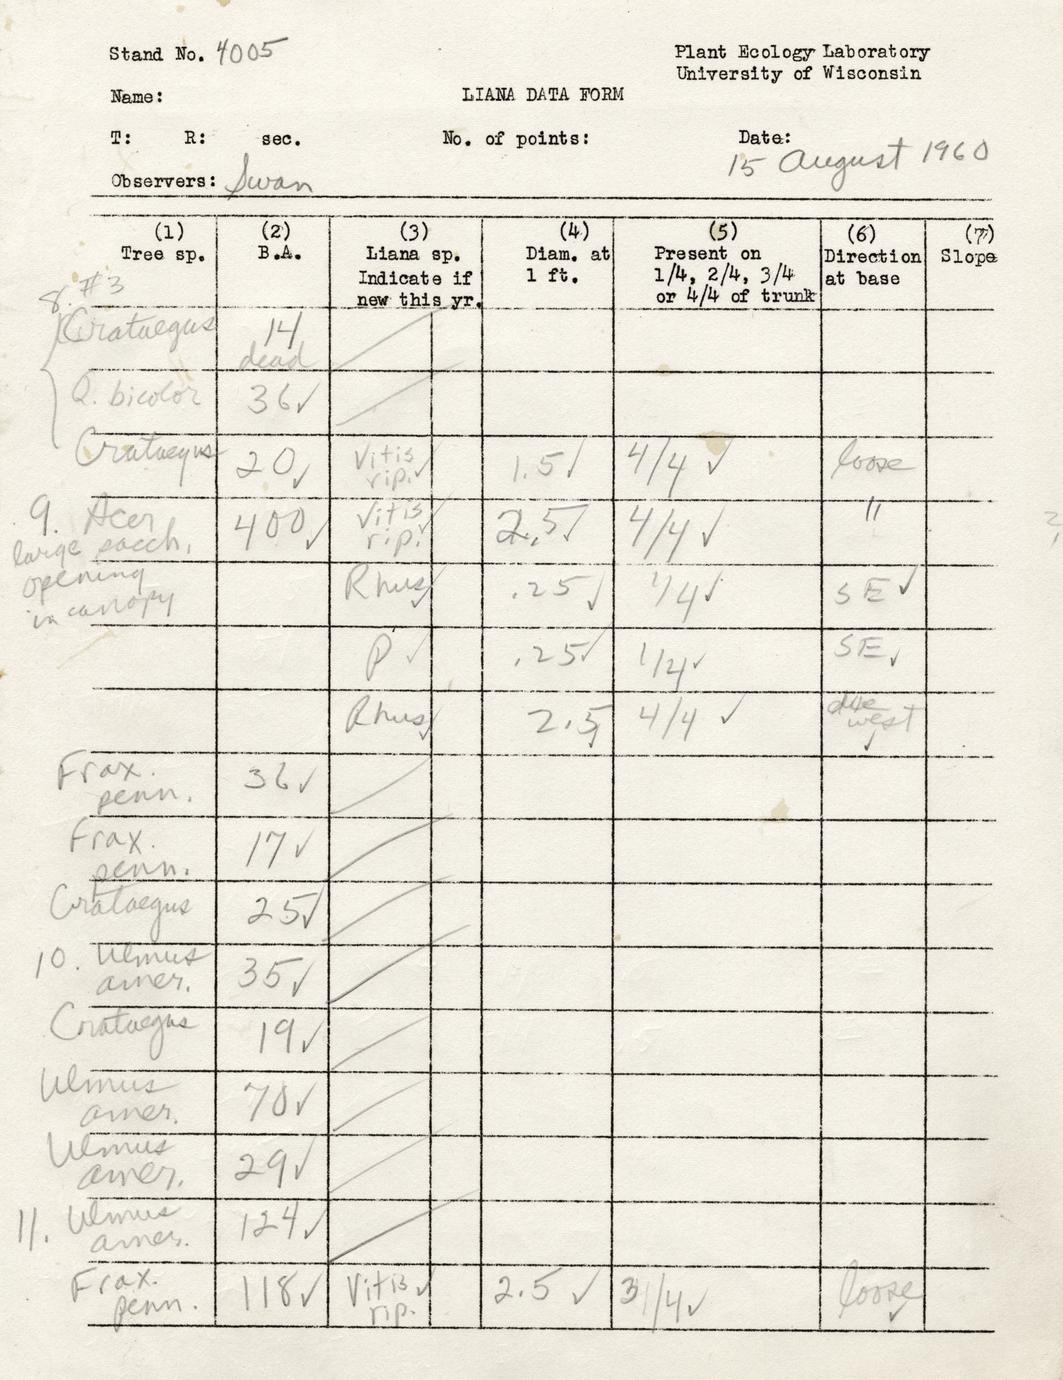 Stand No. 4005
Plant Ecology Laboratory
University of Wisconsin
Name:
LIANA DATA FORM
T: R: sec. No. of points: Date:
15 August 1960
Observers: Swan
(1) (2) (3) (4) (5) (6) (7)
Tree sp. B.A. Liana sp. Diam. at Present on Direction Slope
Indicate if 1 ft. 1/4, 2/4, 3/4 at base
new this yr. or 4/4 of trunk
8. #3
Crataegus 14
dead
Q. bicolor 36✓
Crataegus 20✓ Vitis rip.✓ 1.5✓ 4/4 ✓ loose
9. Acer sacch. 400✓ Vitis rip.✓ 2.5✓ 4/4 ✓ "
large
opening
in canopy
Rhus✓ .25✓ 1/4✓ SE✓
P ✓ .25✓ 1/4✓ SE✓
Rhus✓ 2.5✓ 4/4 ✓ due west ✓
Frax. penn. 36✓
Frax. penn. 17✓
Crataegus 25✓
10. Ulmus amer. 35✓
Crataegus 19✓
Ulmus amer. 70✓
Ulmus amer. 29✓
11. Ulmus amer. 124✓
Frax. penn. 118✓ Vitis rip.✓ 2.5 ✓ 3/4✓ loose✓